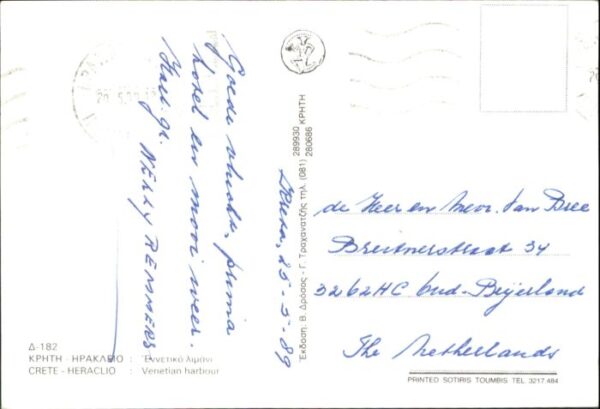 Goede vlucht, prima
hotel en mooi weer.
Hart. gr.
NELLY REMMERS
Kreta, 25-5-89
de Heer en Mevr. Van Bree
Breitnerstraat 34
3262HC Oud-Beijerland
The Netherlands
Δ-182
ΚΡΗΤΗ - ΗΡΑΚΛΕΙΟ : Ενετικό λιμάνι
CRETE - HERACLIO : Venetian harbour
Έκδοση. Β. Δρόσος - Γ. Τραχανατζής τηλ. (081) 289930 ΚΡΗΤΗ
280686
PRINTED SOTIRIS TOUMBIS TEL. 3217 484